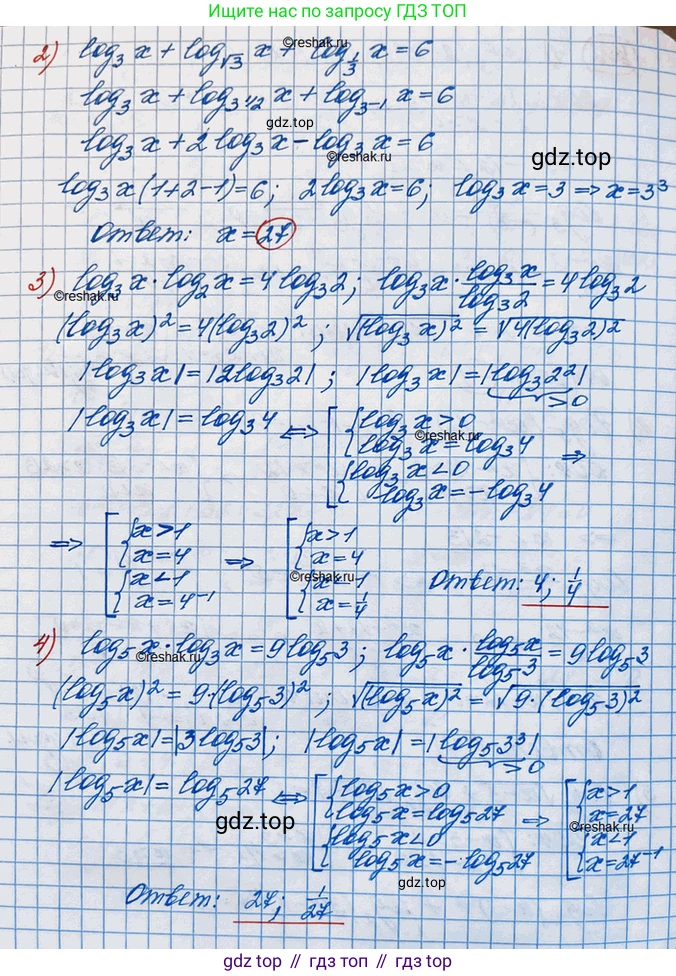 Ищите нас по запросу ГДЗ ТОП
©reshak.ru
2) log₃ x + log_√3 x + log_1/3 x = 6
log₃ x + log_3^1/2 x + log_3^-1 x = 6
gdz.top
log₃ x + 2 log₃ x - log₃ x = 6
©reshak.ru
gdz.top
log₃ x (1+2-1) = 6; 2 log₃ x = 6; log₃ x = 3 => x = 3³
Ответ: x = 27
3) log₃ x · log₂ x = 4 log₃ 2; log₃ x · log₃ x / log₃ 2 = 4 log₃ 2
©reshak.ru
(log₃ x)² = 4(log₃ 2)²; √(log₃ x)² = √4(log₃ 2)²
|log₃ x| = |2 log₃ 2|; |log₃ x| = |log₃ 2²|
>0
|log₃ x| = log₃ 4 <=> [ { log₃ x > 0
log₃ x = log₃ 4
©reshak.ru
{ log₃ x < 0
log₃ x = - log₃ 4 =>
=> [ { x > 1
x = 4
{ x < 1
x = 4⁻¹
=> [ { x > 1
x = 4
{ x = 1
x = 1/4
©reshak.ru
Ответ: 4; 1/4
4) log₅ x · log₃ x = 9 log₅ 3; log₅ x · log₅ x / log₅ 3 = 9 log₅ 3
©reshak.ru
(log₅ x)² = 9·(log₅ 3)²; √(log₅ x)² = √9·(log₅ 3)²
|log₅ x| = |3 log₅ 3|; |log₅ x| = |log₅ 3³|
>0
|log₅ x| = log₅ 27 <=> [ { log₅ x > 0
log₅ x = log₅ 27
{ log₅ x < 0
log₅ x = - log₅ 27
=> [ { x > 1
x = 27
{ x < 1
x = 27⁻¹
gdz.top
©reshak.ru
gdz.top
Ответ: 27; 1/27
gdz.top // гдз.топ // гдз топ